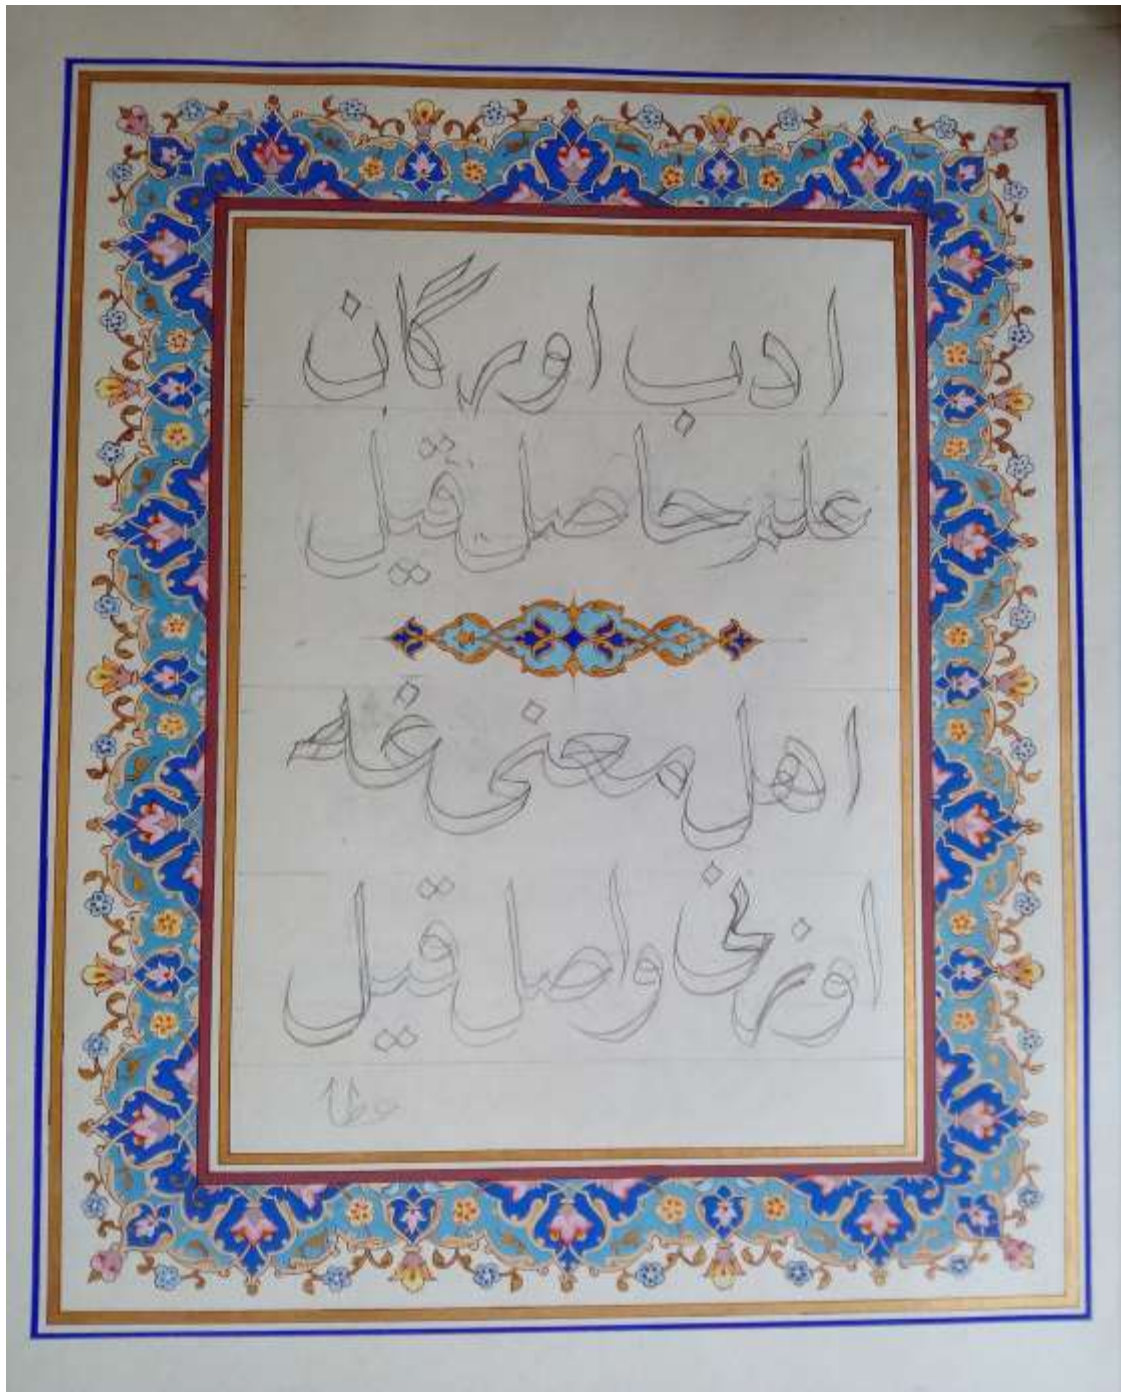 ادب اورگان
علم حاصل قیل
اهل معنی غه
اوزنخی واصل قیل
عطا